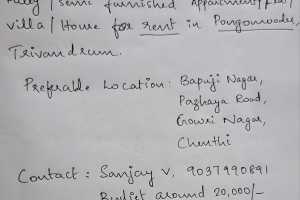 Fully / semi furnished Appartment/flat/
villa / House for rent in Pongomoodu,
Trivandrum.
Preferable Location: Bapuji Nagar,
Pazhaya Road,
Gowri Nagar,
Chenthi
Contact : Sanjay V, 9037990891
Budget around 20,000/-